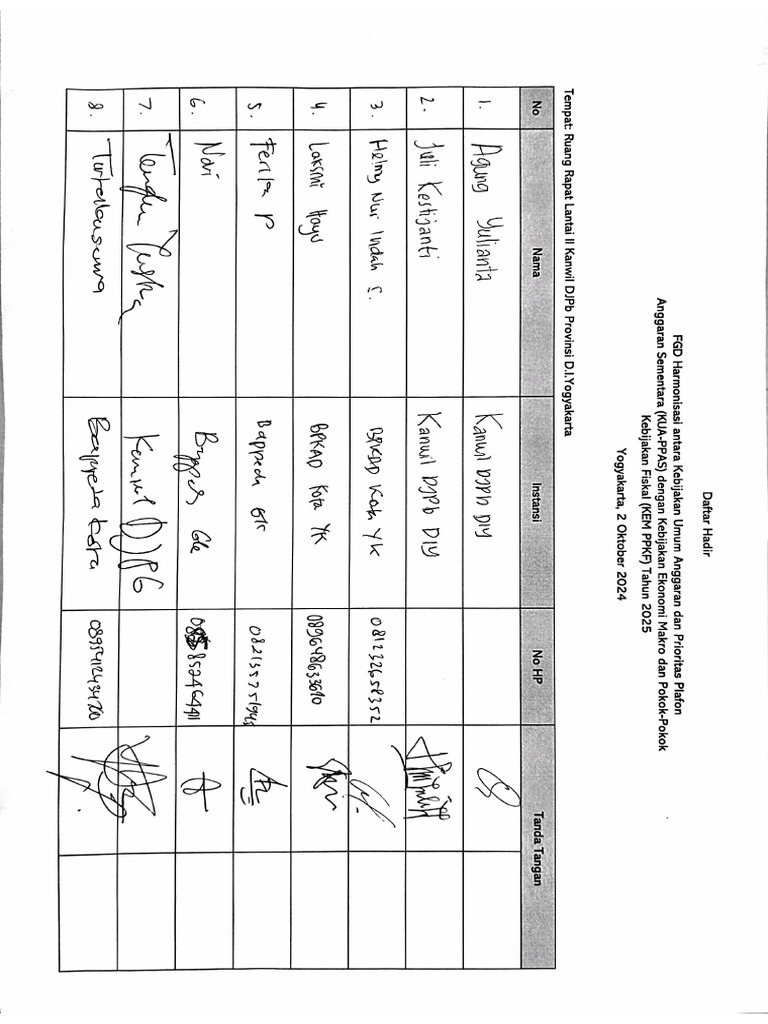 Daftar Hadir
FGD Harmonisasi antara Kebijakan Umum Anggaran dan Prioritas Plafon
Anggaran Sementara (KUA-PPAS) dengan Kebijakan Ekonomi Makro dan Pokok-Pokok
Kebijakan Fiskal (KEM PPKF) Tahun 2025
Yogyakarta, 2 Oktober 2024
Tempat: Ruang Rapat Lantai II Kanwil DJPb Provinsi D.I.Yogyakarta
No Nama Instansi No HP Tanda Tangan
1. Agung Yulianta Kanwil DJPb DIY
2. Juli Kestijanti Kanwil DJPb DIY
3. Helmy Nur Indah S. BPKAD Kota YK 081232658352
4. Laksmi Hayu BPKAD Kota YK 089648633610
5. P Bappeda
6. Novi
7. Kanwil DJPb
8.